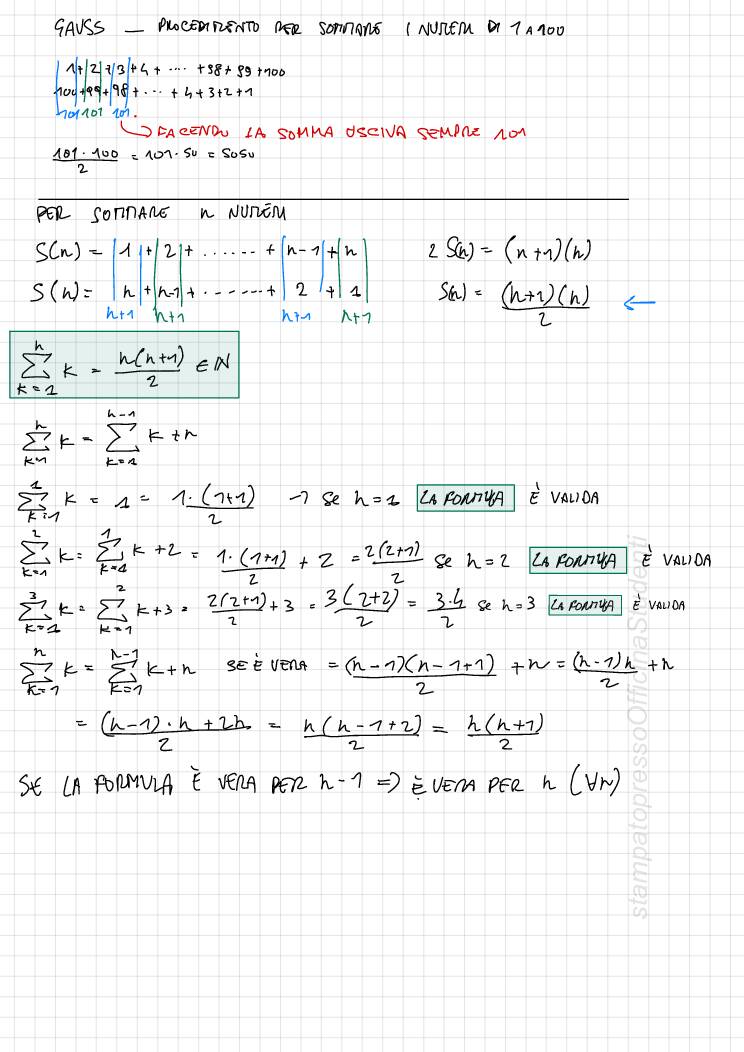 GAUSS — PROCEDIMENTO PER SOMMARE I NUMERI DI 1 A 100
1 + 2 + 3 + 4 + .... + 98 + 99 + 100
100 + 99 + 98 + ... + 4 + 3 + 2 + 1
101 101 101.
FACENDO LA SOMMA USCIVA SEMPRE 101
101 · 100 / 2 = 101 · 50 = 5050
PER SOMMARE n NUMERI
S(n) = 1 + 2 + ...... + n-1 + n 2 S(n) = (n+1)(n)
S(n) = n + n-1 + ....... + 2 + 1 S(n) = (n+1)(n) / 2 ←
n+1 n+1 n+1 n+1
∑_{k=1}^{n} k = n(n+1)/2 ∈ ℕ
∑_{k=1}^{n} k = ∑_{k=1}^{n-1} k + n
∑_{k=1}^{1} k = 1 = 1·(1+1)/2 → se n=1 LA FORMULA È VALIDA
∑_{k=1}^{2} k = ∑_{k=1}^{1} k + 2 = 1·(1+1)/2 + 2 = 2(2+1)/2 se n=2 LA FORMULA È VALIDA
∑_{k=1}^{3} k = ∑_{k=1}^{2} k + 3 = 2(2+1)/2 + 3 = 3(2+2)/2 = 3·4/2 se n=3 LA FORMULA È VALIDA
∑_{k=1}^{n} k = ∑_{k=1}^{n-1} k + n SE È VERA = (n-1)(n-1+1)/2 + n = (n-1)n/2 + n
= (n-1)·n + 2n / 2 = n(n-1+2)/2 = n(n+1)/2
SE LA FORMULA È VERA PER n-1 => È VERA PER n (∀n)
stampatopressoOfficinaStudenti